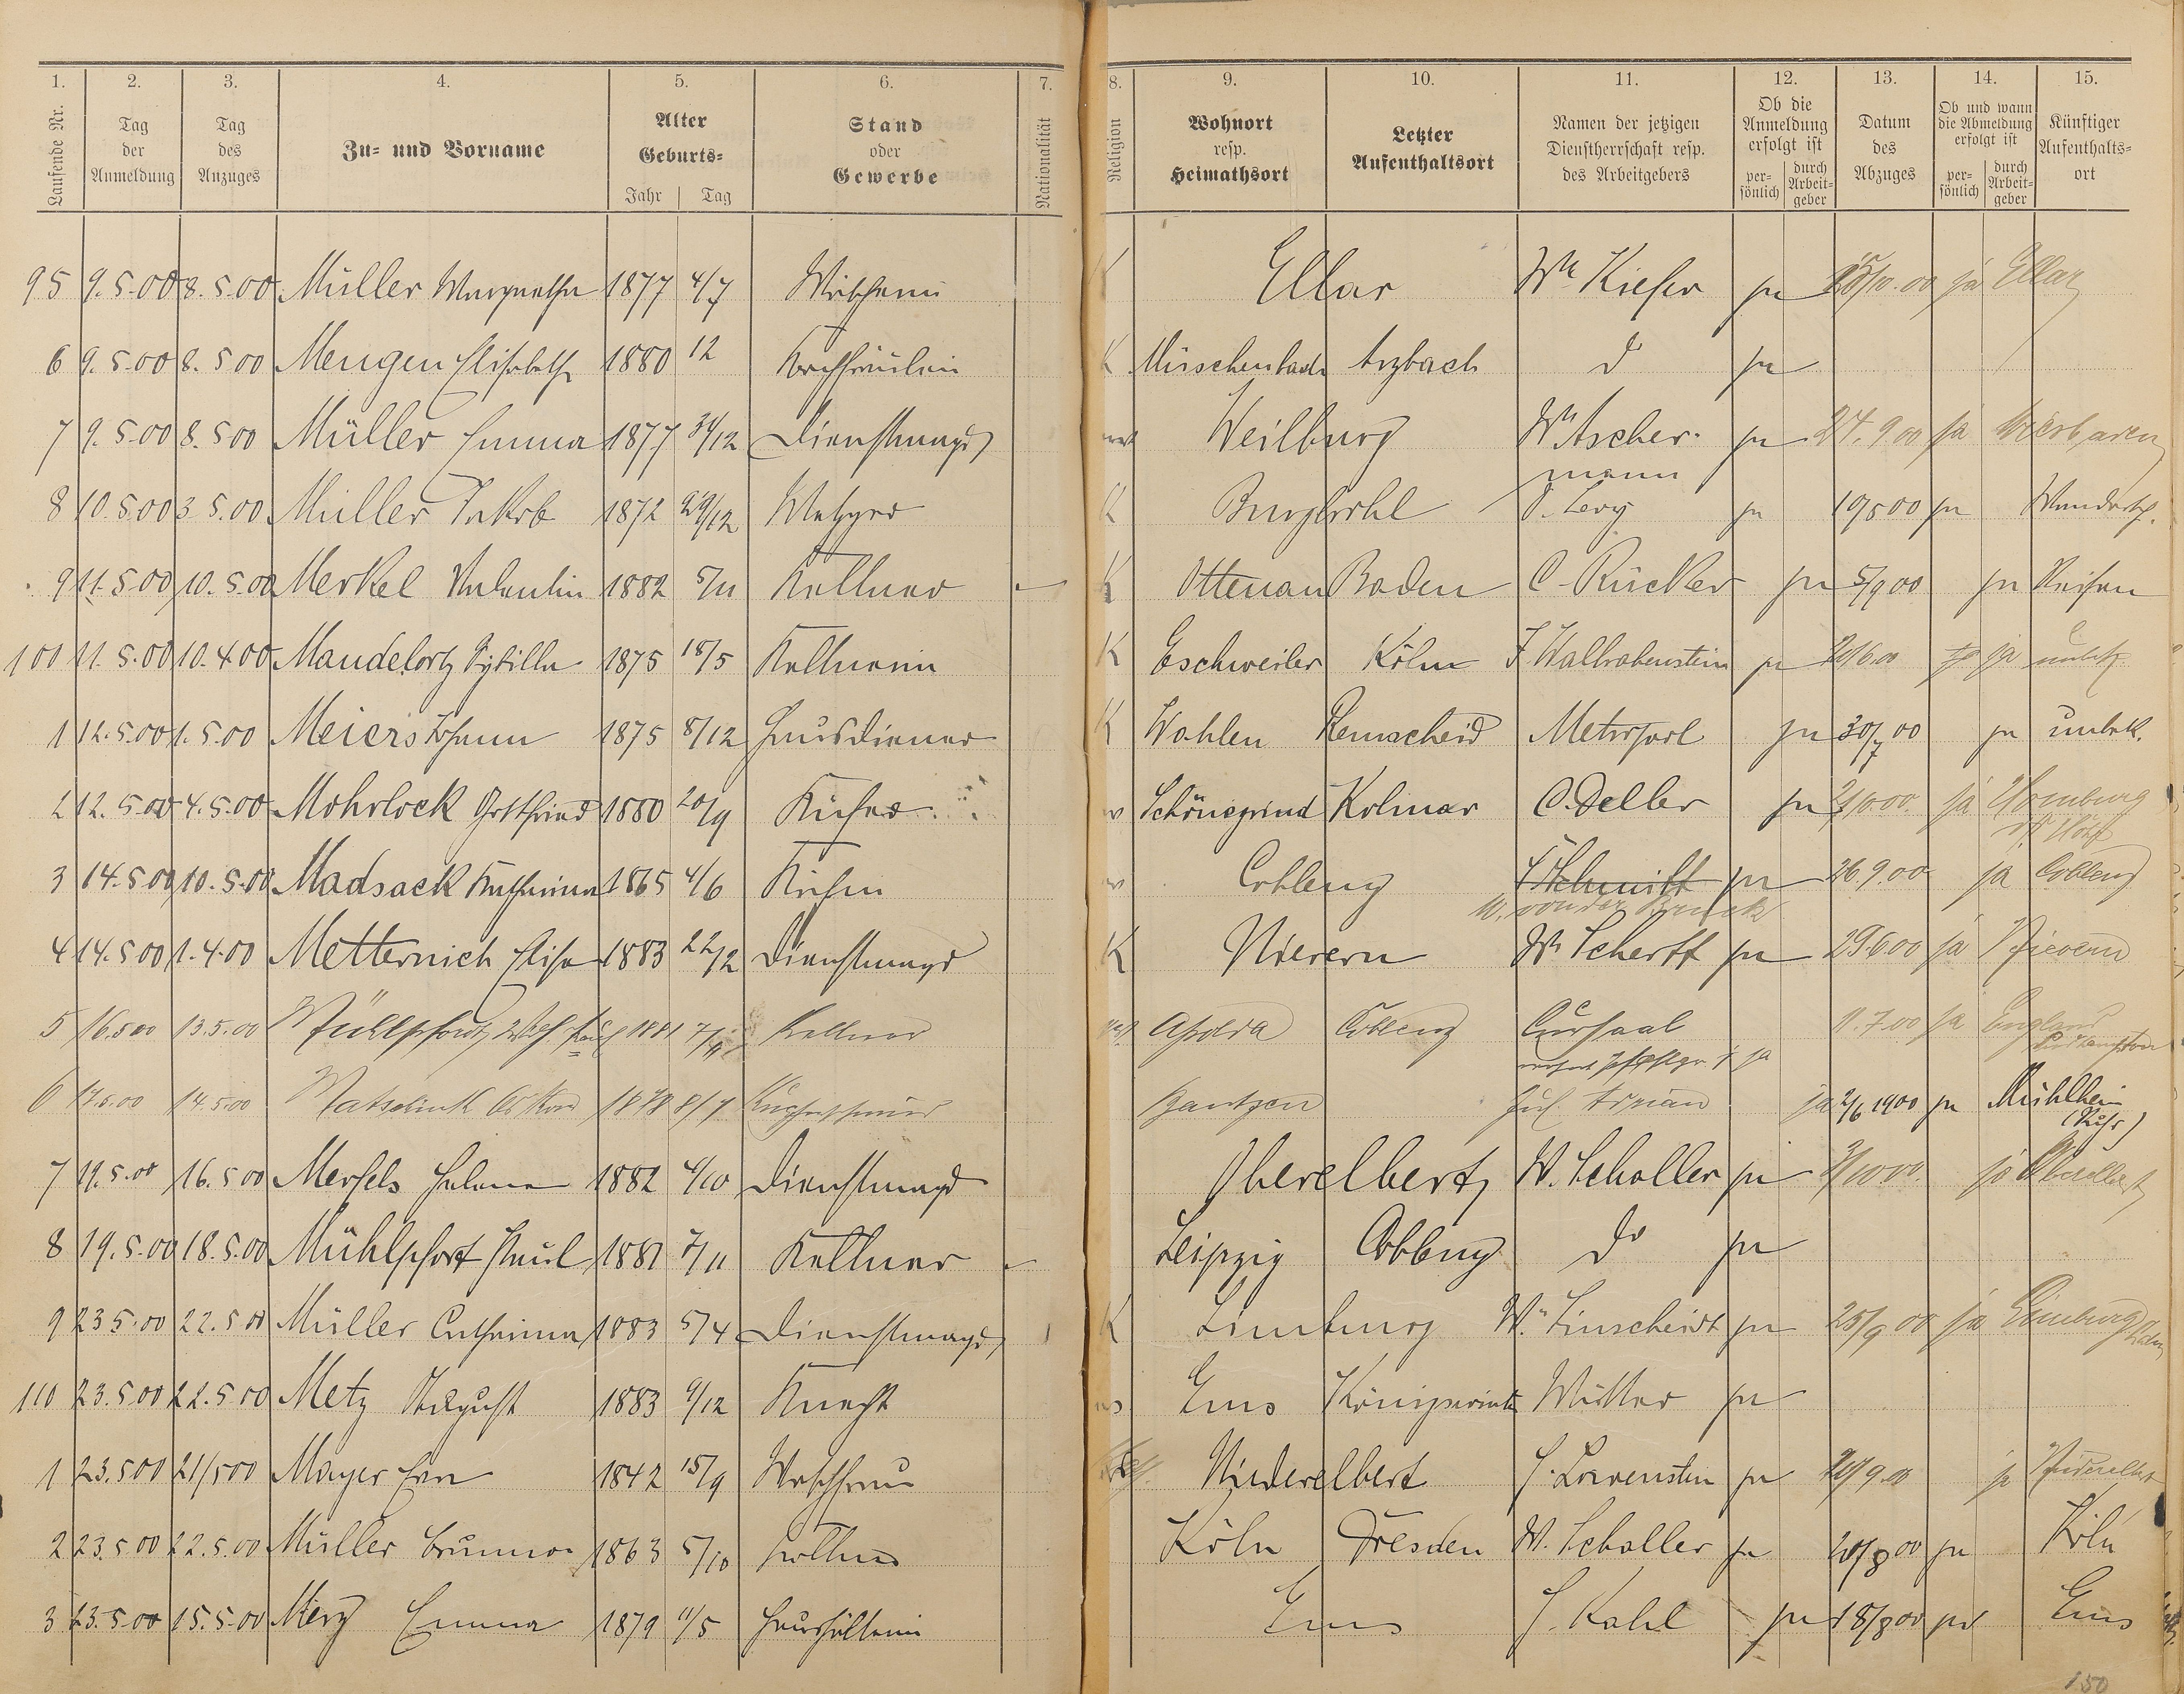 1. 2. 3. 4. 5. 6. 7. 8. 9. 10. 11. 12. 13. 14. 15.
Laufende Nr. Tag der Anmeldung Tag des Anzuges Zu- und Vorname Alter Geburts- Jahr Tag Stand oder Gewerbe Nationalität Religion Wohnort resp. Heimathsort Letzter Aufenthaltsort Namen der jetzigen Dienstherrschaft resp. des Arbeitgebers Ob die Anmeldung erfolgt ist persönlich durch Arbeitgeber Datum des Abzuges Ob und wann die Abmeldung erfolgt ist persönlich durch Arbeitgeber Künftiger Aufenthaltsort
95 9.5.00 8.5.00 Müller Margaretha 1877 4/7 K Ellar We Kiefer ja ja Ellar
6 9.5.00 8.5.00 Mengen Elisabeth 1880 12 Kochfräulein K Arzbach do ja
7 9.5.00 8.5.00 Müller Emma 1877 Dienstmagd Weilburg We Ascher- ja 27.9.00 ja Wiesbaden
mann
8 10.5.00 3.5.00 Müller Jakob 1872 29/12 Metzger K Burgbrohl Levy ja 10/5 00 ja Wandersch.
9 11.5.00 10.5.00 Merkel Valentin 1882 5/11 Kellner K Ottenau Baden C. Rücker ja 5/9 00 ja Reisen
100 11.5.00 10.4.00 Mandelartz Sybilla 1875 18/5 Kellnerin K Eschweiler Köln F Walrabenstein ja 20/6.00 ja unbek.
1 12.5.00 1.5.00 Meiers Johann 1875 8/12 Hausdiener K Wahlen Remscheid Metropol ja 30/7 00 ja unbek.
2 12.5.00 4.5.00 Mohrlock Gottfried 1880 20/9 Küfer Schönegrund Kolmar C. Deller ja ja Homburg
v/d Höhe
3 14.5.00 10.5.00 Madsack Katharina 1865 4/6 Köchin Coblenz Schmitt ja 26.9.00 ja Coblenz
von der Bruck
4 14.5.00 1.4.00 Metternich Elise 1883 22/12 Dienstmagd K Nievern We Scherff ja 29.6.00 ja Nievern
5 16.5.00 13.5.00 Mühlpfordt Paul 1881 7/11 Kellner Apolda Coblenz Cursaal 1.7.00 ja England
ja
6 17.5.00 14.5.00 1878 8/7 Jul. ja 2/6 1900 ja Mühlheim
(Ruhr)
7 19.5.00 16.5.00 Mersels Helena 1882 4/10 Dienstmagd Oberelbert W. Scholler ja ja Oberelbert
8 19.5.00 18.5.00 Mühlpfort Paul 1881 7/11 Kellner Leipzig Coblenz do ja
9 23.5.00 22.5.00 Müller Catharina 1883 5/4 Dienstmagd K Limburg We Linscheidt ja 25/9 00 ja Limburg
110 23.5.00 22.5.00 Metz August 1883 9/12 Knecht Ems Königswinter Müller ja
1 23.5.00 21/5 00 Mayer Eva 1842 15/9 Waschfrau Niederelbert J. Löwenstein ja 20/9.00 ja Niederelbert
2 23.5.00 22.5.00 Müller Bruno 1863 5/10 Kellner Köln Dresden W. Scholler ja 20/8 00 ja Köln
3 23.5.00 15.5.00 Merz Emma 1879 11/5 Haushälterin Ems J. Kahl ja 18/8 00 ja Ems
150